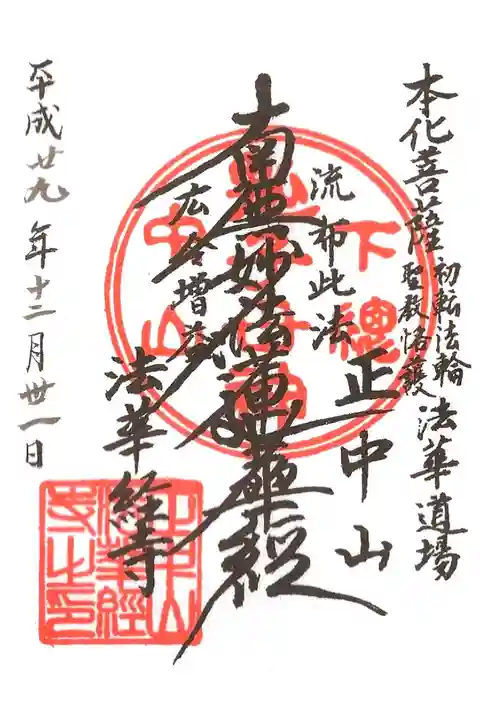 本化菩薩初転法輪聖教恪護法華道場
正中山
流布此法
南無妙法蓮華経
広令増益
法華経寺
平成廿九年十二月卅一日
下總
中山
法華経